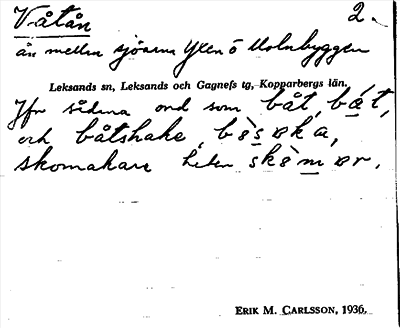 Våtån 2.
ån mellan sjöarna Yxen o Molnbyggen
Leksands sn, Leksands och Gagnefs tg, Kopparbergs län.
Jfr sådana ord som båt, bá̱t,
och båtshake, bòs̱øka,
skomakare heter skòm̱ør.
ERIK M. CARLSSON, 1936.